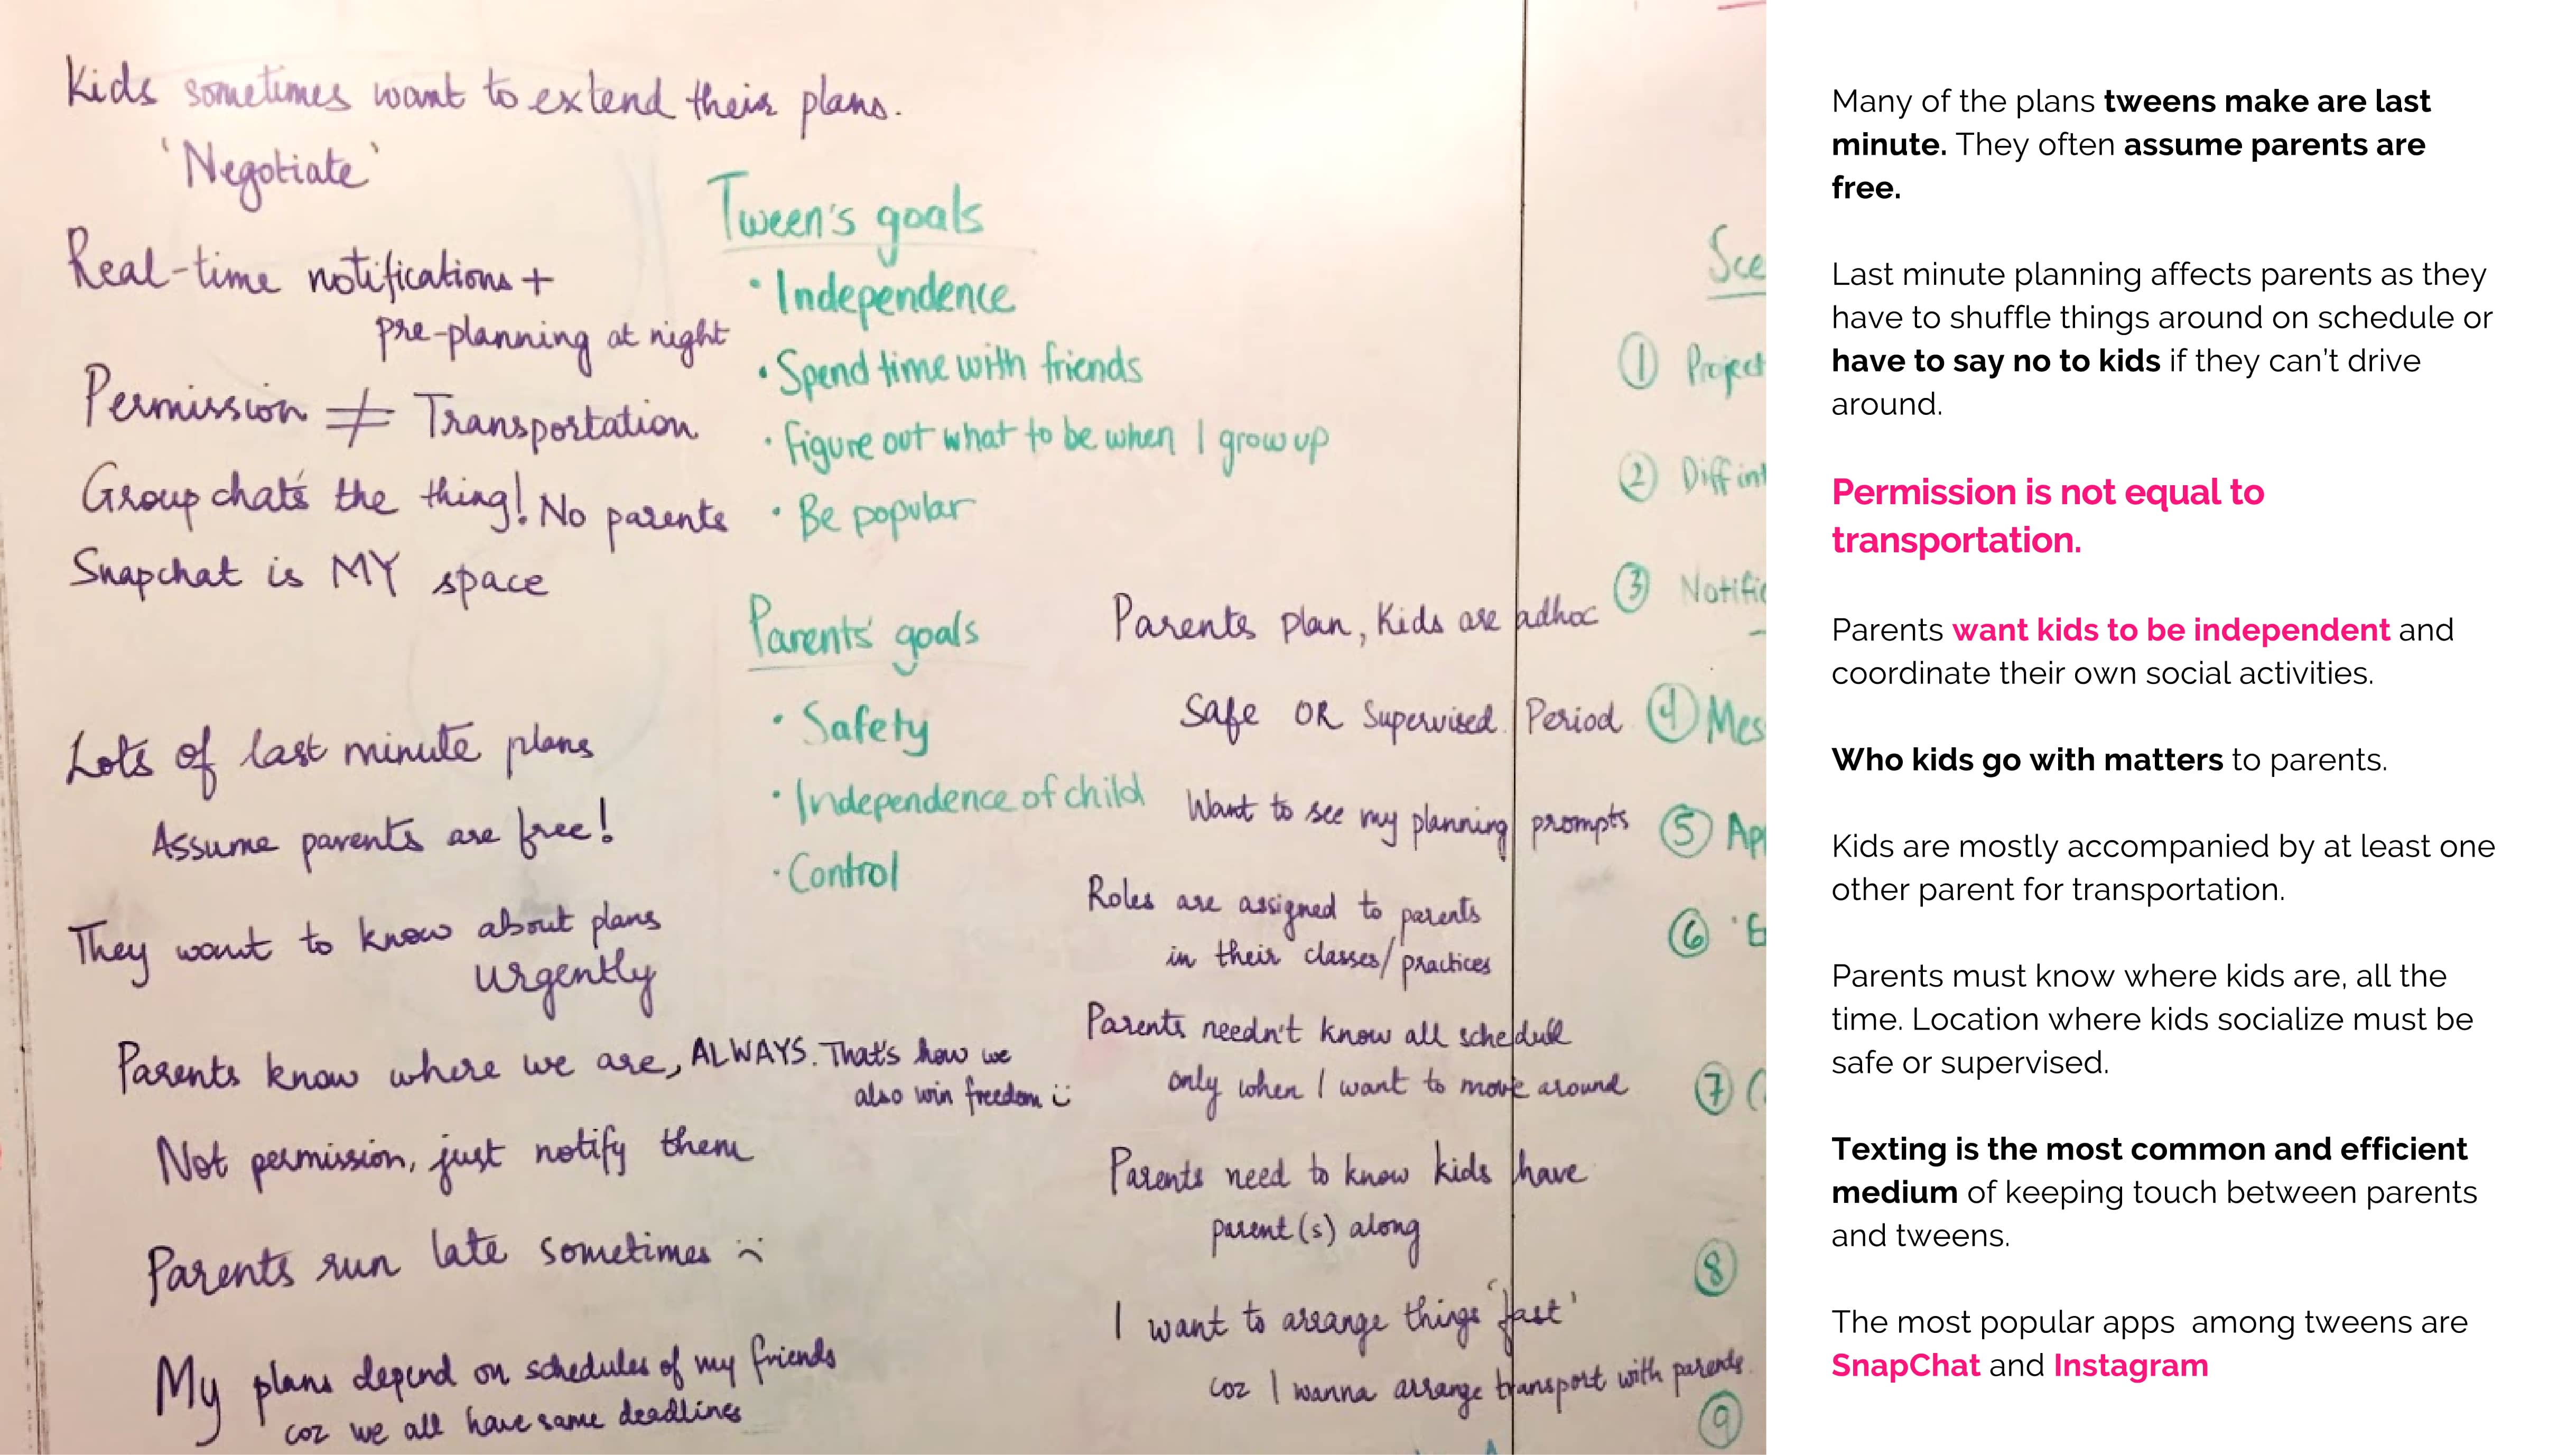 Kids sometimes want to extend their plans.
'Negotiate'
Real-time notifications +
pre-planning at night
Permission ≠ Transportation
Group chat's the thing! No parents
Snapchat is MY space
Lots of last minute plans
Assume parents are free!
They want to know about plans
urgently
Parents know where we are, ALWAYS. That's how we
also win freedom :)
Not permission, just notify them
Parents run late sometimes :(
My plans depend on schedules of my friends
coz we all have same deadlines
Tween's goals
• Independence
• Spend time with friends
• Figure out what to be when I grow up
• Be popular
Parents' goals
• Safety
• Independence of child
• Control
Parents plan, Kids are adhoc
Safe OR Supervised Period
Want to see my planning prompts
Roles are assigned to parents
in their classes/practices
Parents needn't know all schedule
only when I want to move around
Parents need to know kids have
parent(s) along
I want to arrange things 'fast'
coz I wanna arrange transport with parents.
Sce
① Project
② Diff int
③ Notific
④ Mes
⑤ App
⑥
⑦
⑧
⑨
Many of the plans tweens make are last
minute. They often assume parents are
free.
Last minute planning affects parents as they
have to shuffle things around on schedule or
have to say no to kids if they can't drive
around.
Permission is not equal to
transportation.
Parents want kids to be independent and
coordinate their own social activities.
Who kids go with matters to parents.
Kids are mostly accompanied by at least one
other parent for transportation.
Parents must know where kids are, all the
time. Location where kids socialize must be
safe or supervised.
Texting is the most common and efficient
medium of keeping touch between parents
and tweens.
The most popular apps among tweens are
SnapChat and Instagram